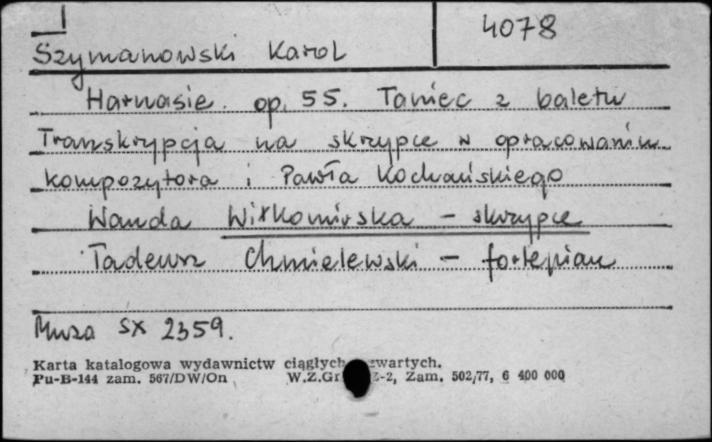 4078
Szymanowski Karol
Harnasie. op. 55. Taniec z baletu
Transkrypcja na skrzypce w opracowaniu
kompozytora i Pawła Kochańskiego
Wanda Wiłkomirska - skrzypce
Tadeusz Chmielewski - fortepian
Muza SX 2359.
Karta katalogowa wydawnictw ciągłych zwartych.
Pu-B-144 zam. 567/DW/On W.Z.Gr Z-2, Zam. 502/77, 6 400 000